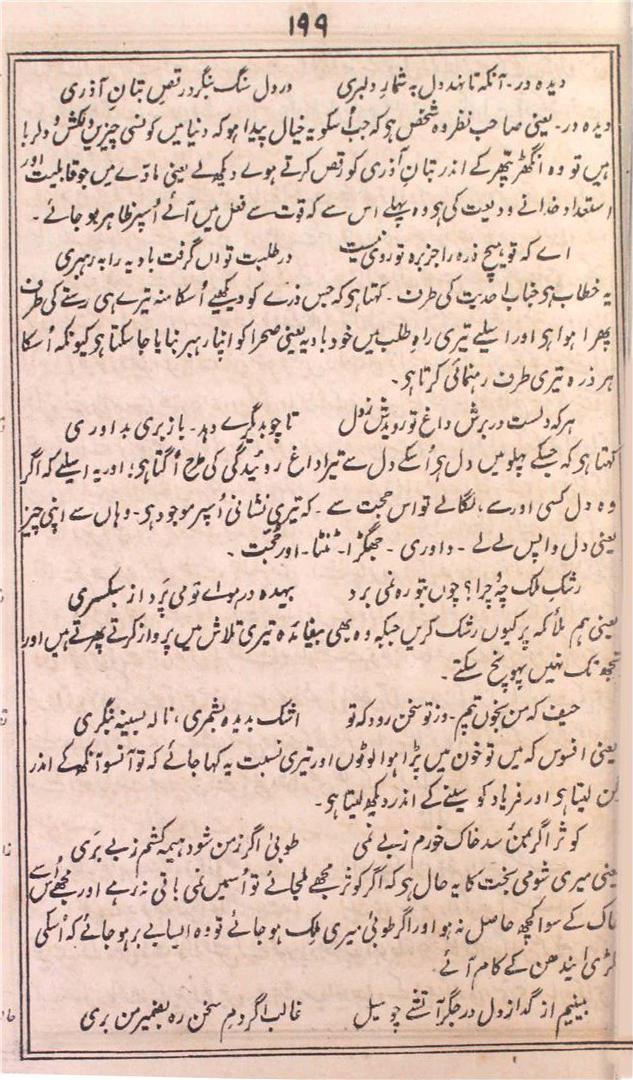 ۱۹۹
دیدہ در۔ آنکہ تا نہد دل بہ شمارِ دلبری دردل سنگ بنگرد رقصِ بتانِ آذری
دیدہ ور۔ یعنی صاحب نظر وہ شخص ہی کہ جب اُسکو یہ خیال پیدا ہو کہ دنیا میں کونسی چیزیں دلکش و دلربا
ہیں تو وہ انگھڑ پتھر کے اندر بتانِ آذری کو رقص کرتے ہوے دیکھ لے یعنی مادّے میں جو قابلیت اور
استعداد خدا نے ودیعت کی ہی وہ پہلے اس سے کہ قوت سے فعل میں آئے اُسپر ظاہر ہو جائے۔
اے کہ تو ہیچ ذرہ را جز برہ تو روی نیست در طلبت تواں گرفت بادیہ را بہ رہبری
یہ خطاب ہی جناب احدیت کی طرف۔ کہتا ہی کہ جس ذرے کو دیکھیے اُسکا منہ تیرے ہی رستے کی طرف
پھرا ہوا ہی اور اسلیے تیری راہِ طلب میں خود بادیہ یعنی صحرا کو اپنا رہبر بنایا جا سکتا ہی کیونکہ اُسکا
ہر ذرہ تیری طرف رہنمائی کرتا ہی۔
ہر کہ دلست در برش داغ تو رویدش ز دل تا چو بدیگرے دہد۔ باز بری بداوری
کہتا ہی کہ جسکے پہلو میں دل ہی اُسکے دل سے تیرا داغ روئیدگی کی طرح اُگتا ہی؛ اور یہ اسلیے کہ اگر
وہ دل کسی اور سے، لگالے تو اس حجت سے۔ کہ تیری نشانی اُسپر موجود ہی۔ وہاں سے اپنی چیز
یعنی دل واپس لے لے۔ داوری۔ جھگڑا۔ ٹنٹا۔ اور حجّت۔
رشک ملک چہ و چرا؟ چوں بتو رہ نمی برد بیہدہ در ہواے تو می پَرد از سبکسری
یعنی ہم ملائکہ پر کیوں رشک کریں جبکہ وہ بھی بیفائدہ تیری تلاش میں پرواز کرتے پھرتے ہیں اور
تجھ تک نہیں پہونچ سکتے۔
حیف کہ من بخوں تپم۔ وز تو سخن رود کہ تو اشک بدیدہ بشمری، نالہ بسینہ بنگری
یعنی افسوس کہ میں تو خون میں پڑا ہوا لوٹوں اور تیری نسبت یہ کہا جائے کہ تو آنسو آنکھ کے اندر
گن لیتا ہی اور فریاد کو سینے کے اندر دیکھ لیتا ہی۔
کوثر اگر بمن رسد خاک خورم ز بے نمی طوبیٰ اگر ز من شود ہیمہ کشم ز بے بری
یعنی میری شومی بخت کا یہ حال ہی کہ اگر کوثر مجھے ملجائے تو اُسمیں نمی باقی نہ رہے اور مجھے اُس سے
خاک کے سوا کچھ حاصل نہ ہو اور اگر طوبیٰ میری مِلک ہو جائے تو وہ ایسا بے بر ہو جائے کہ اُسکی
لکڑی ایندھن کے کام آئے۔
بینیم از گداز دل در جگر آتشے چو سیل غالب اگر دمِ سخن رہ بضمیر من بری